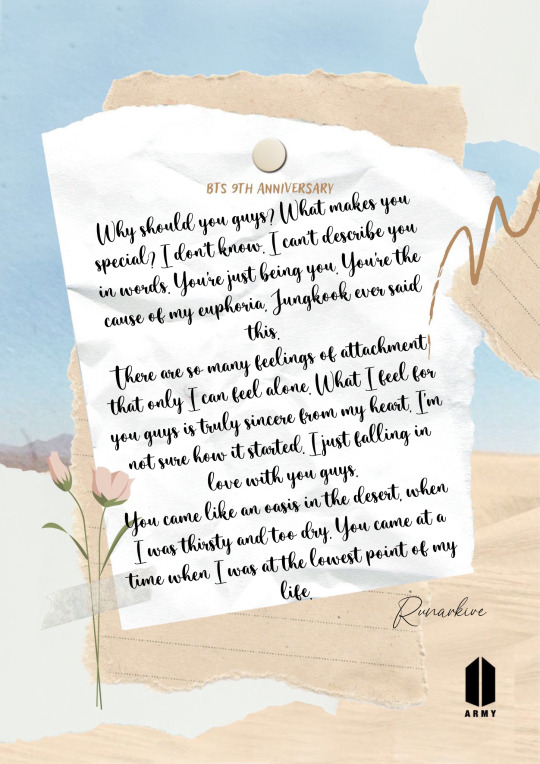 BTS 9TH ANNIVERSARY
Why should you guys? What makes you
special? I don't know. I can't describe you
in words. You're just being you. You're the
cause of my euphoria. Jungkook ever said
this.
There are so many feelings of attachment
that only I can feel alone. What I feel for
you guys is truly sincere from my heart. I'm
not sure how it started. I just falling in
love with you guys.
You came like an oasis in the desert, when
I was thirsty and too dry. You came at a
time when I was at the lowest point of my
life.
Runarkive
ARMY